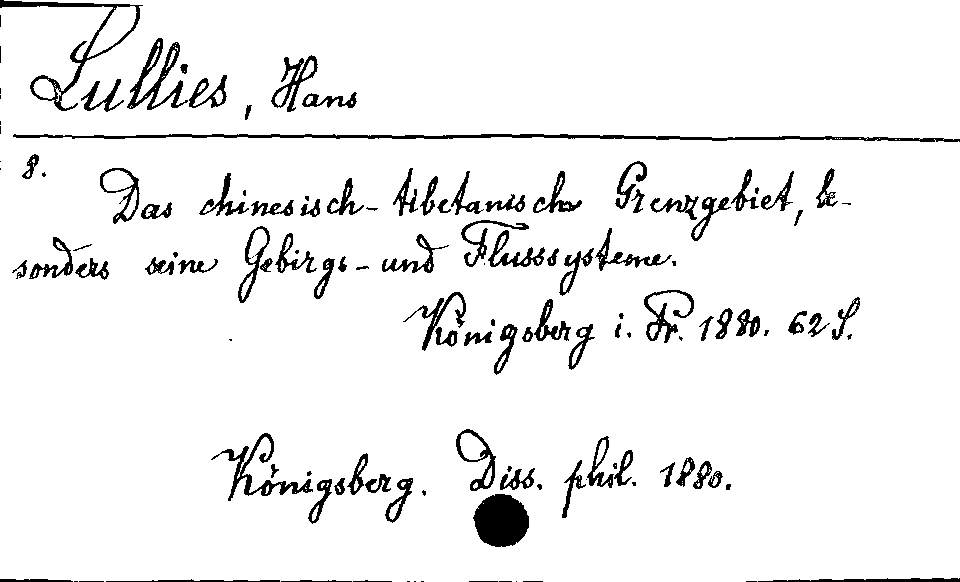 Lullies, Hans
8.
Das chinesisch-tibetanische Grenzgebiet, be-
sonders seine Gebirgs- und Flusssysteme.
Königsberg i. Pr. 1880. 62 S.
Königsberg. Diss. phil. 1880.